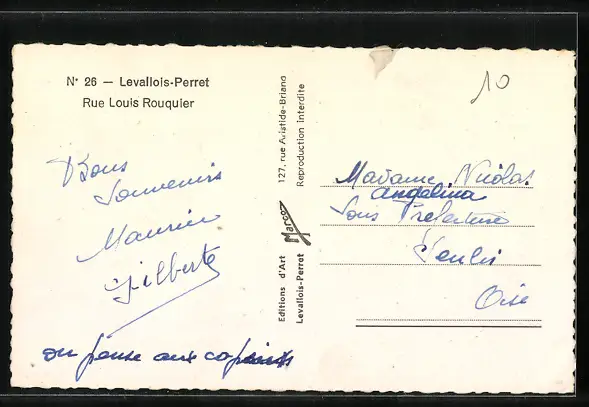 N° 26 — Levallois-Perret
Rue Louis Rouquier
Bons
Souvenirs
Maurice
Gilberte
on pense aux copains
127, rue Aristide-Briand
Reproduction interdite
Marco
Editions d'Art
Levallois-Perret
10
Madame Nicolas
Angelina
Sous Prefecture
Senlis
Oise